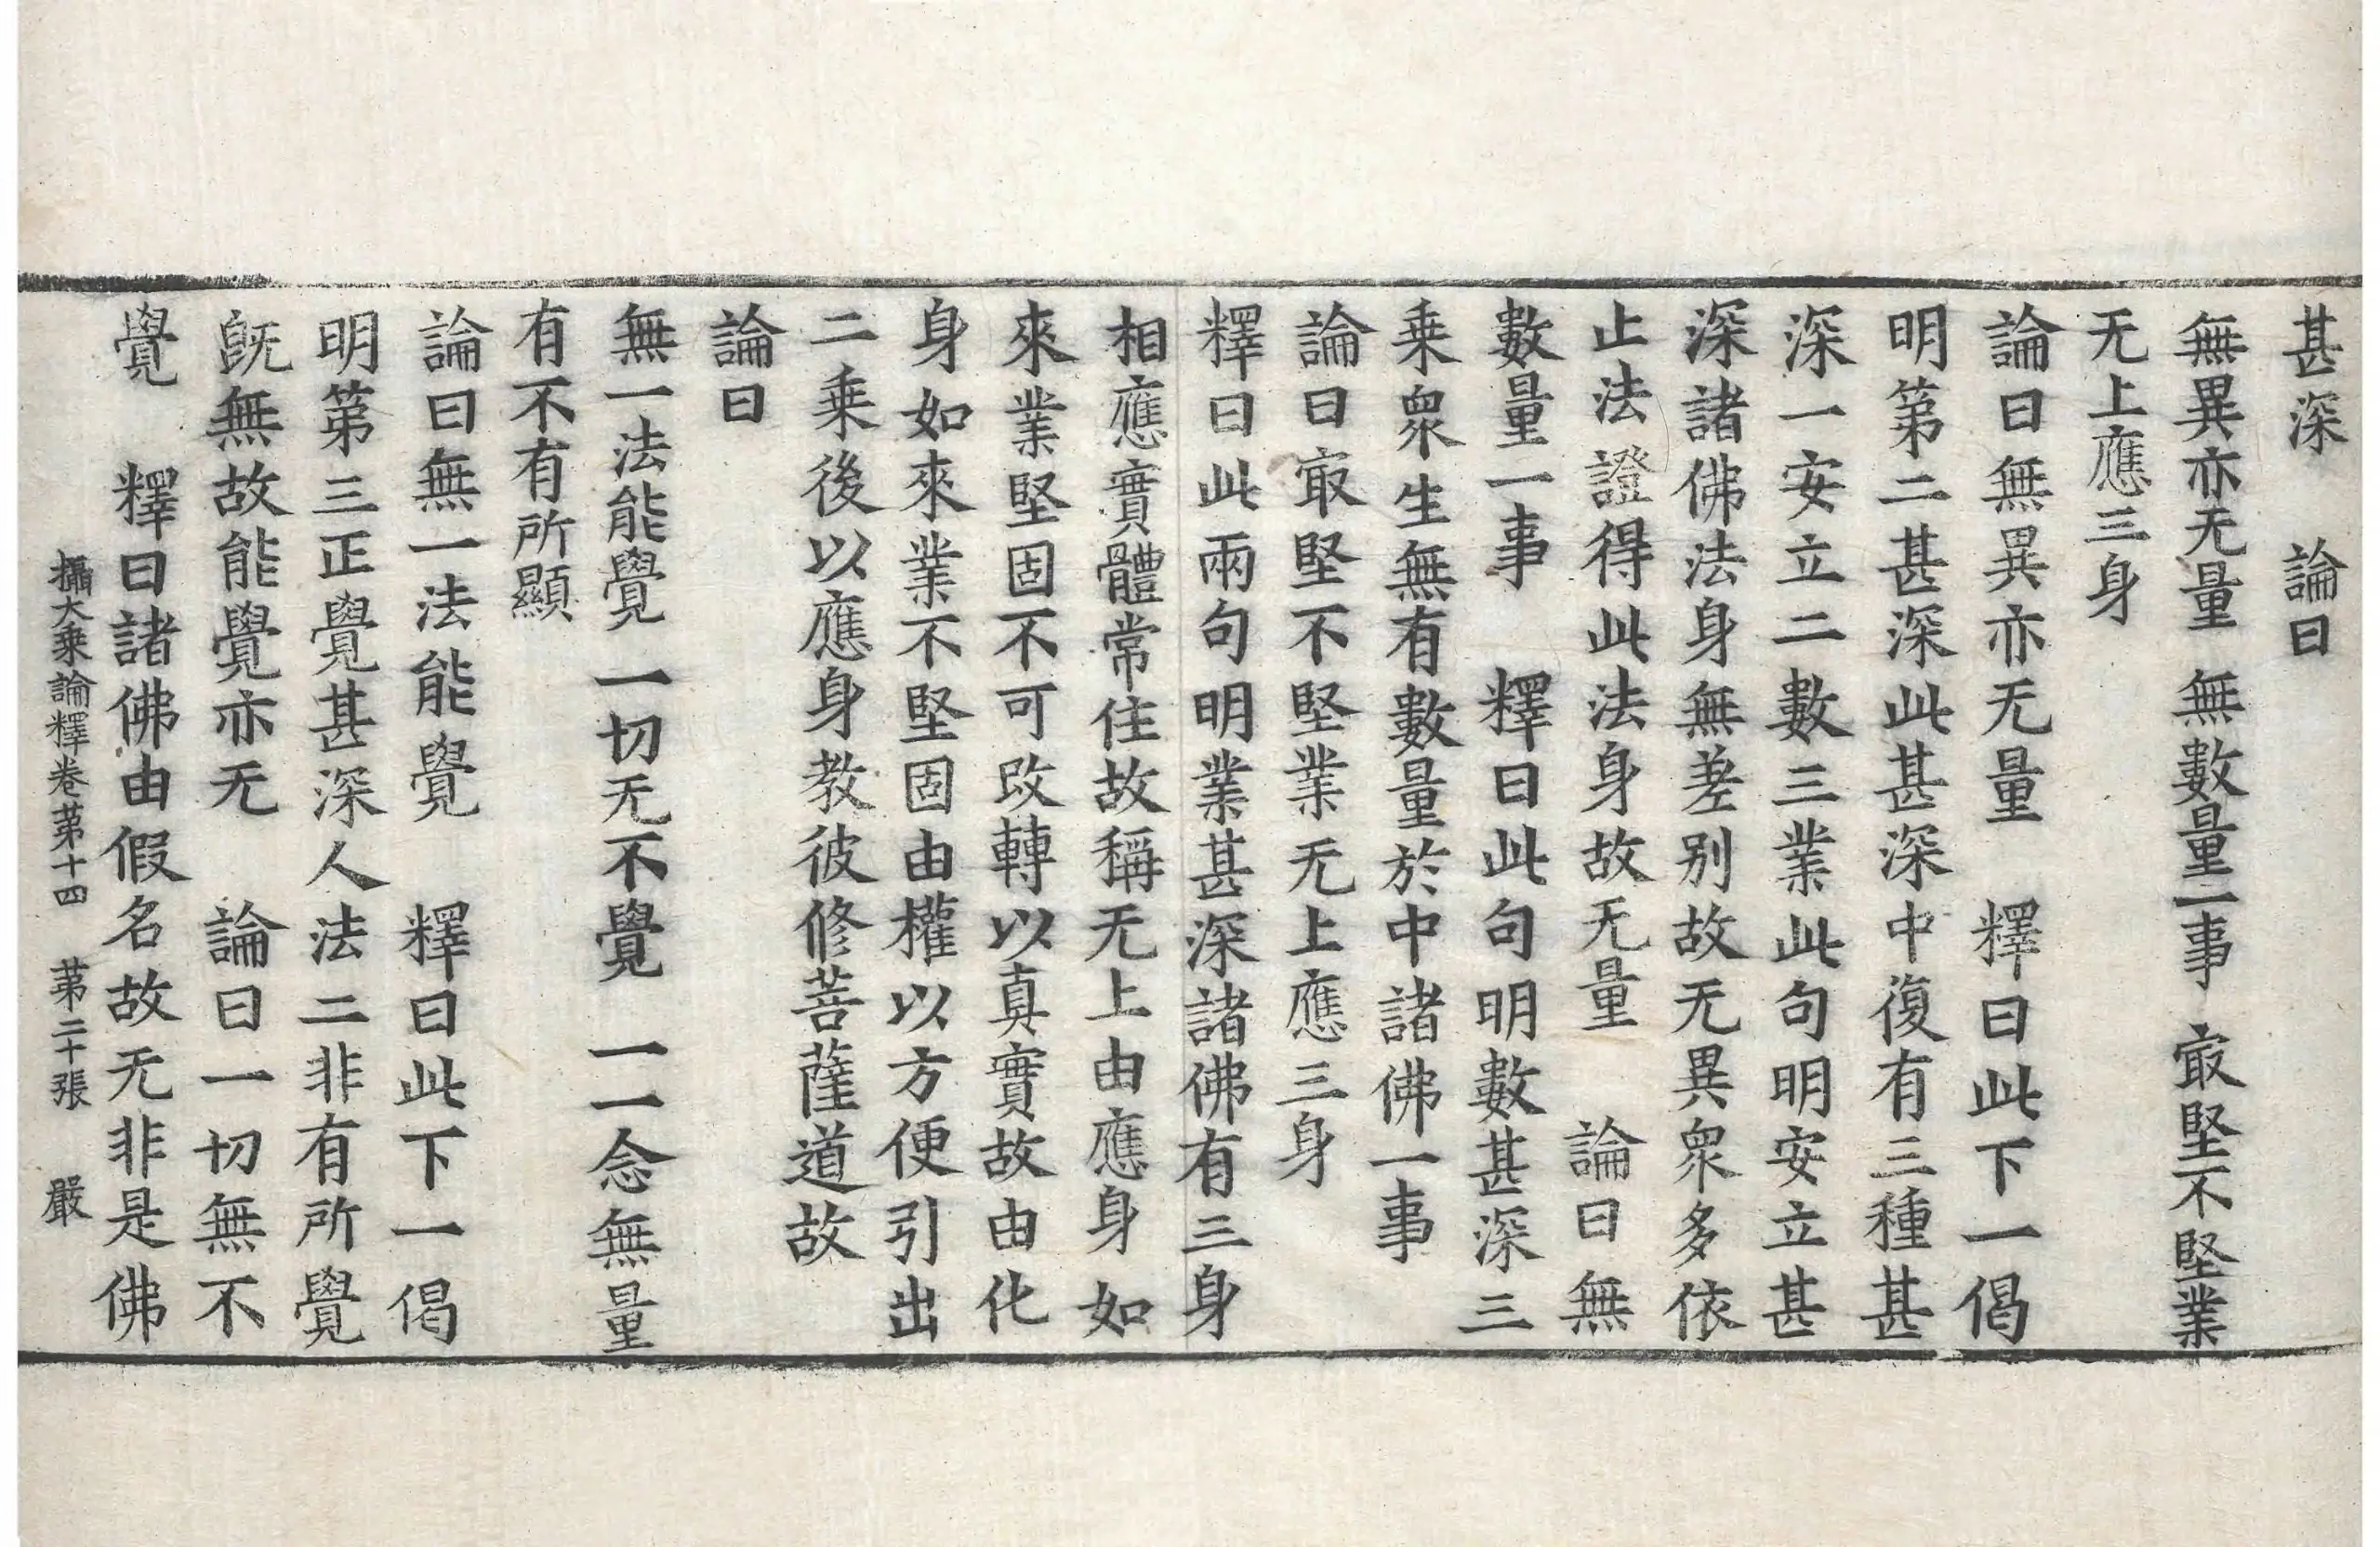 甚深　論曰
無異亦无量　無數量一事　㝡堅不堅業
无上應三身
論曰無異亦无量　釋曰此下一偈
明第二甚深此甚深中復有三種甚
深一安立二數三業此句明安立甚
深諸佛法身無差别故无異衆多依
止法證得此法身故无量　論曰無
數量一事　釋曰此句明數甚深三
乗衆生無有數量於中諸佛一事
論曰㝡堅不堅業无上應三身
釋曰此兩句明業甚深諸佛有三身
相應實體常住故稱无上由應身如
來業堅固不可改轉以真實故由化
身如來業不堅固由權以方便引出
二乗後以應身教彼修菩薩道故
論曰
無一法能覺　一切无不覺　一一念無量
有不有所顯
論曰無一法能覺　釋曰此下一偈
明第三正覺甚深人法二非有所覺
旣無故能覺亦无　論曰一切無不
覺　釋曰諸佛由假名故无非是佛
攝大乗論釋卷苐十四　苐二十張　嚴